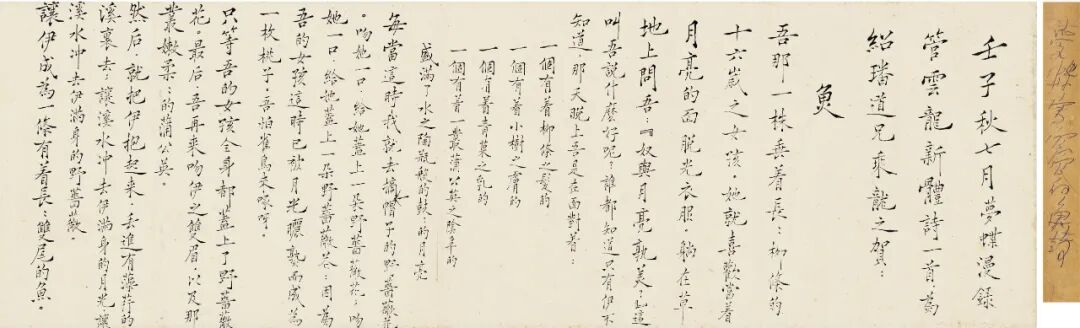 壬子秋七月夢蝶漫錄
管雲龍新體詩一首為
紹璠道兄乘龍之賀：
魚
吾那一株垂着長：柳條的
十六歲之女孩。她就喜歡當着
月亮的面脫光衣服。躺在草
地上問吾：『奴與月亮孰美？』這
叫吾說什麼好呢？誰都知道只有伊不
知道，那天晚上吾是在面對着：
一個有着柳條之髮的
一個有着小樹之膚的
一個有着青菓之乳的
一個有着一叢蒲公英之陰阜的
盛滿了水之陶瓶般的鼓：的月亮
每當這時我就去摘帽子的野薔薇花
。吻她一口，給她蓋上一朵野薔薇花；吻
她一口，給她蓋上一朵野薔薇花：因為
吾的女孩這時已被月光曬熟而成為
一枚桃子。吾怕雀鳥來啄呀。
只等吾的女孩全身都蓋上了野薔薇
花。最后，吾再來吻伊之雙眉，以及那
叢嫩柔：的蒲公英。
然后就把伊抱起來，丟進有藻荇的
溪裏去；讓溪水冲去伊滿身的月光讓
溪水冲去伊滿身的野薔薇。
讓伊成為一條有着長：雙尾的魚。